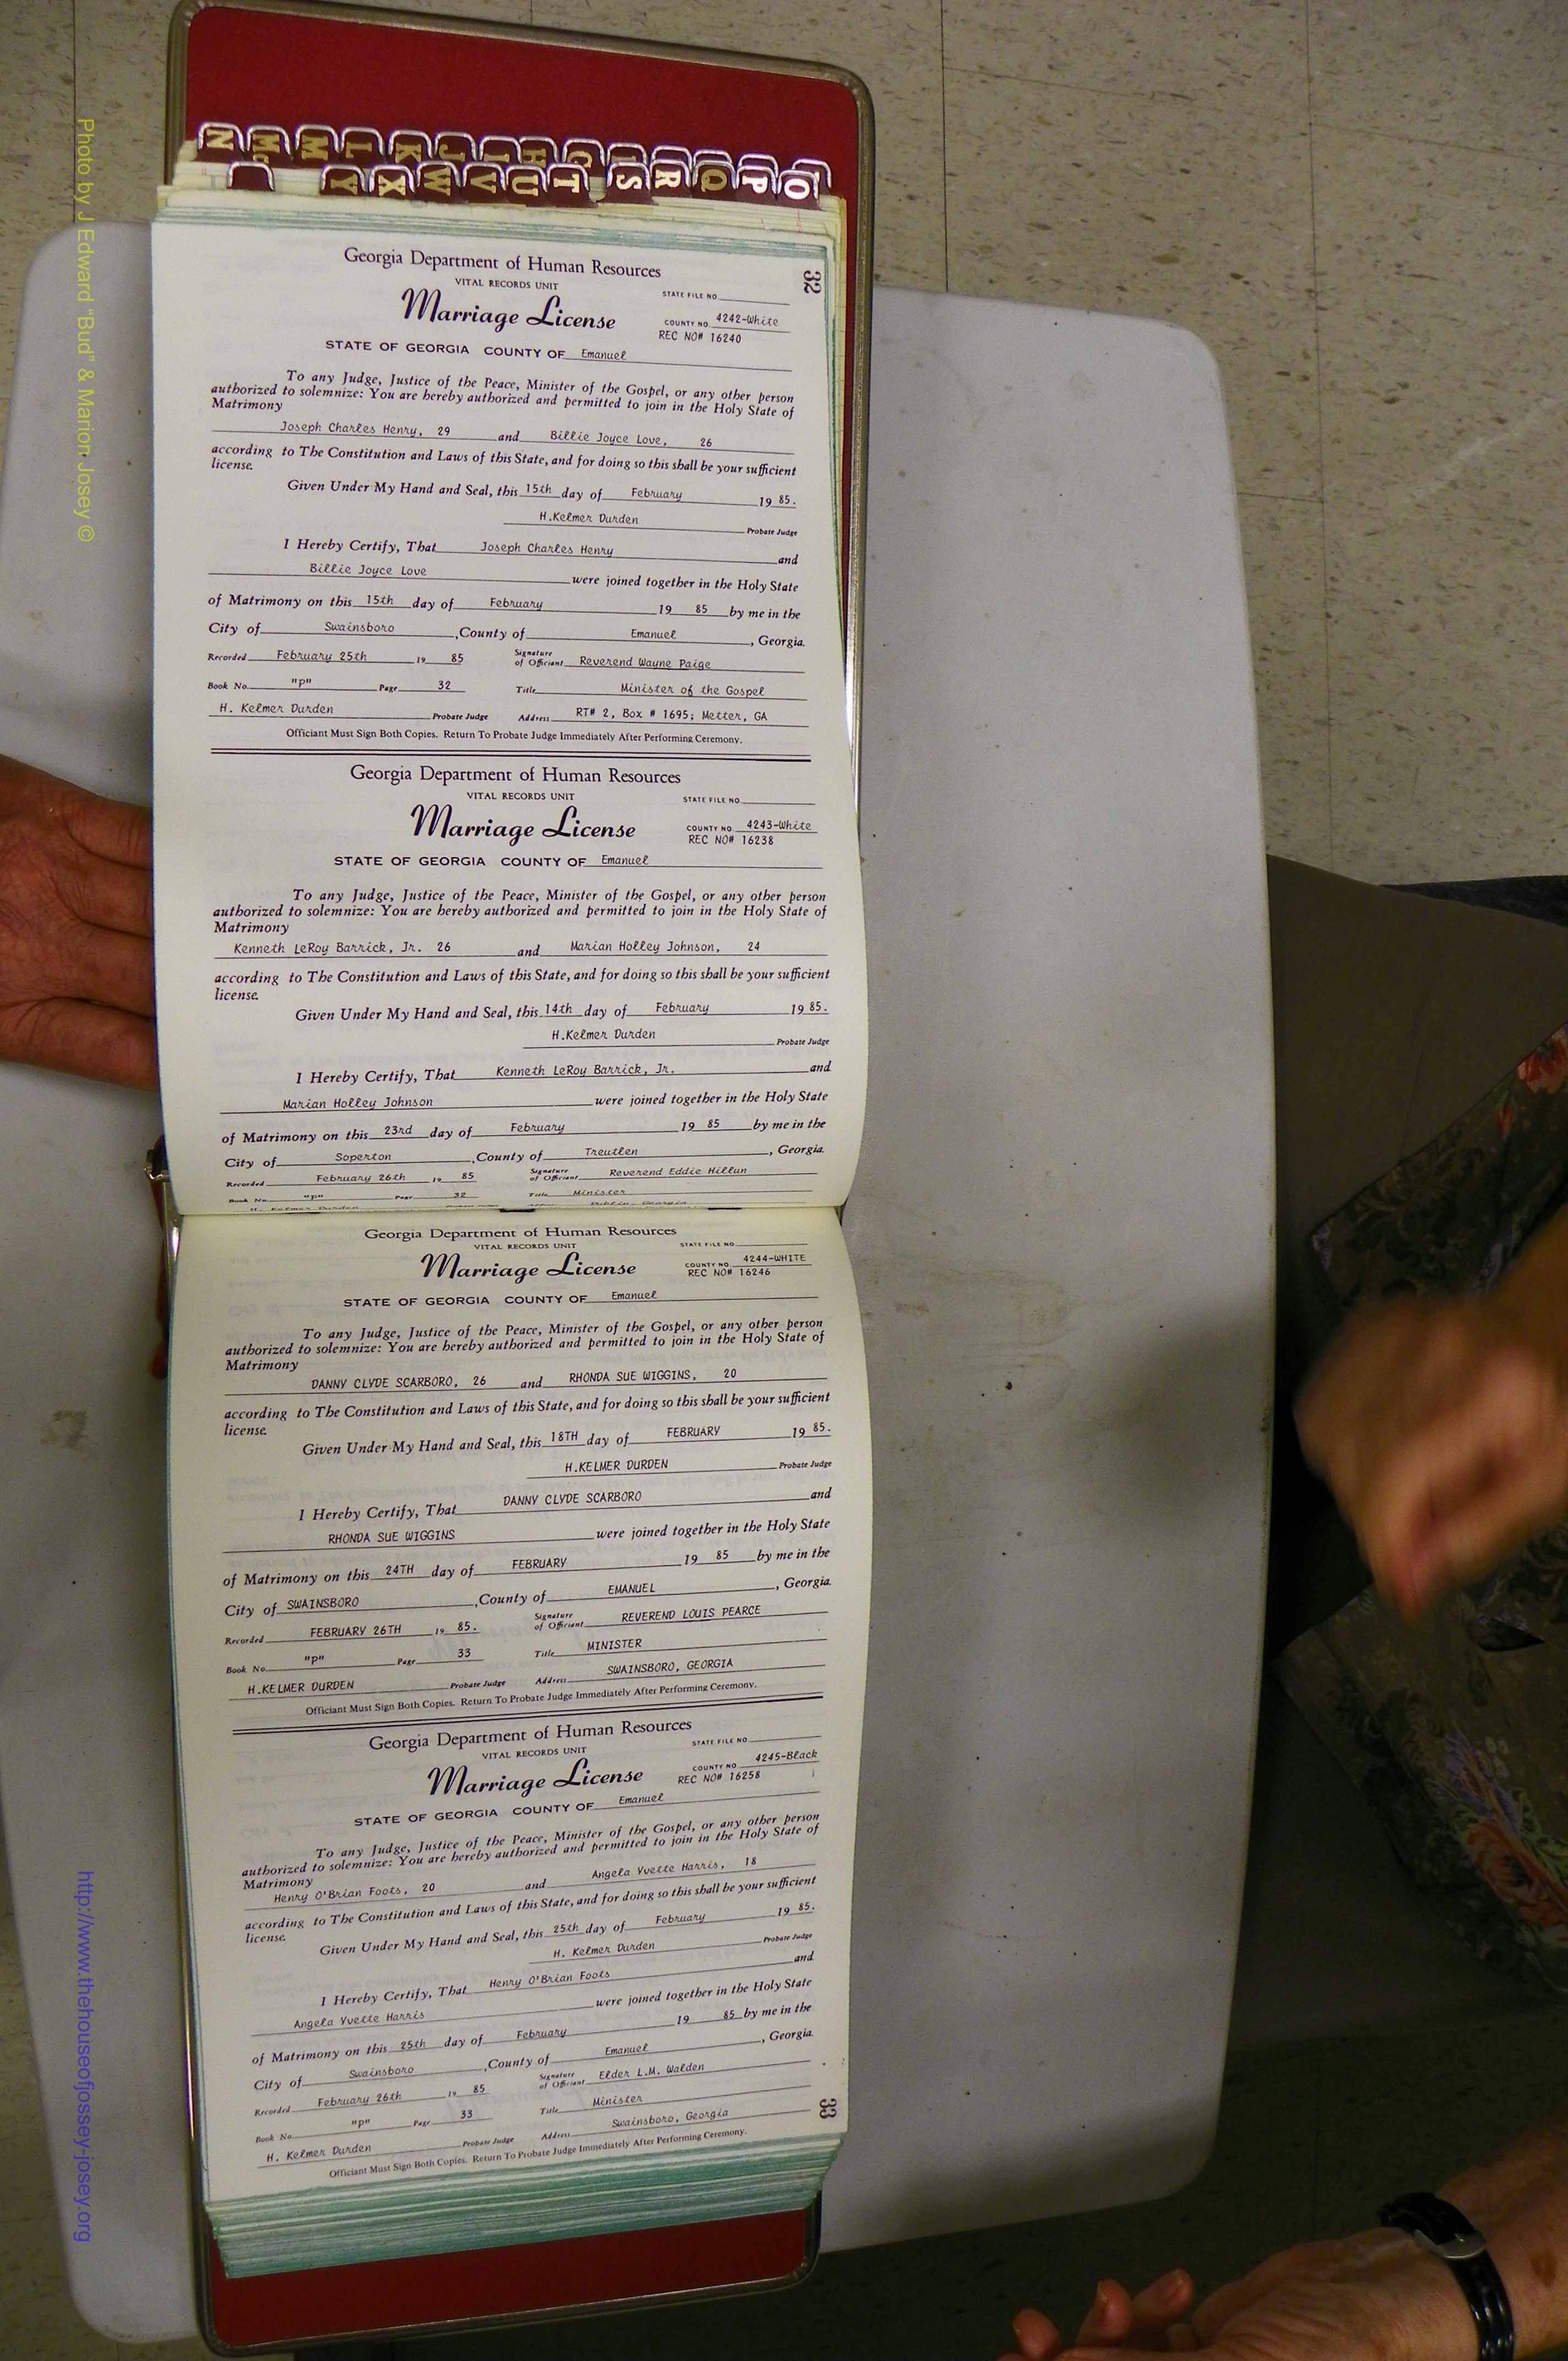 N M Mc L K J I H G
Y X W V U T S R Q P O
32
Georgia Department of Human Resources
VITAL RECORDS UNIT
STATE FILE NO.
Marriage License
COUNTY NO. 4242-White
REC NO# 16240
STATE OF GEORGIA COUNTY OF Emanuel
To any Judge, Justice of the Peace, Minister of the Gospel, or any other person
authorized to solemnize: You are hereby authorized and permitted to join in the Holy State of
Matrimony
Joseph Charles Henry, 29 and Billie Joyce Love, 26
according to The Constitution and Laws of this State, and for doing so this shall be your sufficient
license.
Given Under My Hand and Seal, this 15th day of February 19 85.
H.Kelmer Durden
Probate Judge
I Hereby Certify, That Joseph Charles Henry and
Billie Joyce Love were joined together in the Holy State
of Matrimony on this 15th day of February 19 85 by me in the
City of Swainsboro, County of Emanuel, Georgia.
Recorded February 25th 19 85 Signature of Officiant Reverend Wayne Paige
Book No. "p" Page 32 Title Minister of the Gospel
H. Kelmer Durden Probate Judge Address RT# 2, Box # 1695; Metter, GA
Officiant Must Sign Both Copies. Return To Probate Judge Immediately After Performing Ceremony.
Georgia Department of Human Resources
VITAL RECORDS UNIT
STATE FILE NO.
Marriage License
COUNTY NO. 4243-White
REC NO# 16238
STATE OF GEORGIA COUNTY OF Emanuel
To any Judge, Justice of the Peace, Minister of the Gospel, or any other person
authorized to solemnize: You are hereby authorized and permitted to join in the Holy State of
Matrimony
Kenneth LeRoy Barrick, Jr. 26 and Marian Holley Johnson, 24
according to The Constitution and Laws of this State, and for doing so this shall be your sufficient
license.
Given Under My Hand and Seal, this 14th day of February 19 85.
H.Kelmer Durden
Probate Judge
I Hereby Certify, That Kenneth LeRoy Barrick, Jr. and
Marian Holley Johnson were joined together in the Holy State
of Matrimony on this 23rd day of February 19 85 by me in the
City of Soperton, County of Treutlen, Georgia.
Recorded February 26th 19 85 Signature of Officiant Reverend Eddie Hillun
Book No. "p" Page 32 Title Minister
H. Kelmer Durden Dublin, Georgia
Georgia Department of Human Resources
VITAL RECORDS UNIT
STATE FILE NO.
Marriage License
COUNTY NO. 4244-WHITE
REC NO# 16246
STATE OF GEORGIA COUNTY OF Emanuel
To any Judge, Justice of the Peace, Minister of the Gospel, or any other person
authorized to solemnize: You are hereby authorized and permitted to join in the Holy State of
Matrimony
DANNY CLYDE SCARBORO, 26 and RHONDA SUE WIGGINS, 20
according to The Constitution and Laws of this State, and for doing so this shall be your sufficient
license.
Given Under My Hand and Seal, this 18TH day of FEBRUARY 19 85.
H.KELMER DURDEN
Probate Judge
I Hereby Certify, That DANNY CLYDE SCARBORO and
RHONDA SUE WIGGINS were joined together in the Holy State
of Matrimony on this 24TH day of FEBRUARY 19 85 by me in the
City of SWAINSBORO, County of EMANUEL, Georgia.
Recorded FEBRUARY 26TH 19 85. Signature of Officiant REVEREND LOUIS PEARCE
Book No. "p" Page 33 Title MINISTER
H.KELMER DURDEN Probate Judge Address SWAINSBORO, GEORGIA
Officiant Must Sign Both Copies. Return To Probate Judge Immediately After Performing Ceremony.
Georgia Department of Human Resources
VITAL RECORDS UNIT
STATE FILE NO.
Marriage License
COUNTY NO. 4245-Black
REC NO# 16258
STATE OF GEORGIA COUNTY OF Emanuel
To any Judge, Justice of the Peace, Minister of the Gospel, or any other person
authorized to solemnize: You are hereby authorized and permitted to join in the Holy State of
Matrimony
Henry O'Brian Foots, 20 and Angela Yvette Harris, 18
according to The Constitution and Laws of this State, and for doing so this shall be your sufficient
license.
Given Under My Hand and Seal, this 25th day of February 19 85.
H. Kelmer Durden
Probate Judge
I Hereby Certify, That Henry O'Brian Foots and
Angela Yvette Harris were joined together in the Holy State
of Matrimony on this 25th day of February 19 85 by me in the
City of Swainsboro, County of Emanuel, Georgia.
Recorded February 26th 19 85 Signature of Officiant Elder L.M. Walden
Book No. "p" Page 33 Title Minister
H. Kelmer Durden Probate Judge Address Swainsboro, Georgia
Officiant Must Sign Both Copies. Return To Probate Judge Immediately After Performing Ceremony.
33
Photo by J Edward "Bud" & Marion Josey ©
http://www.thehouseofjossey-josey.org